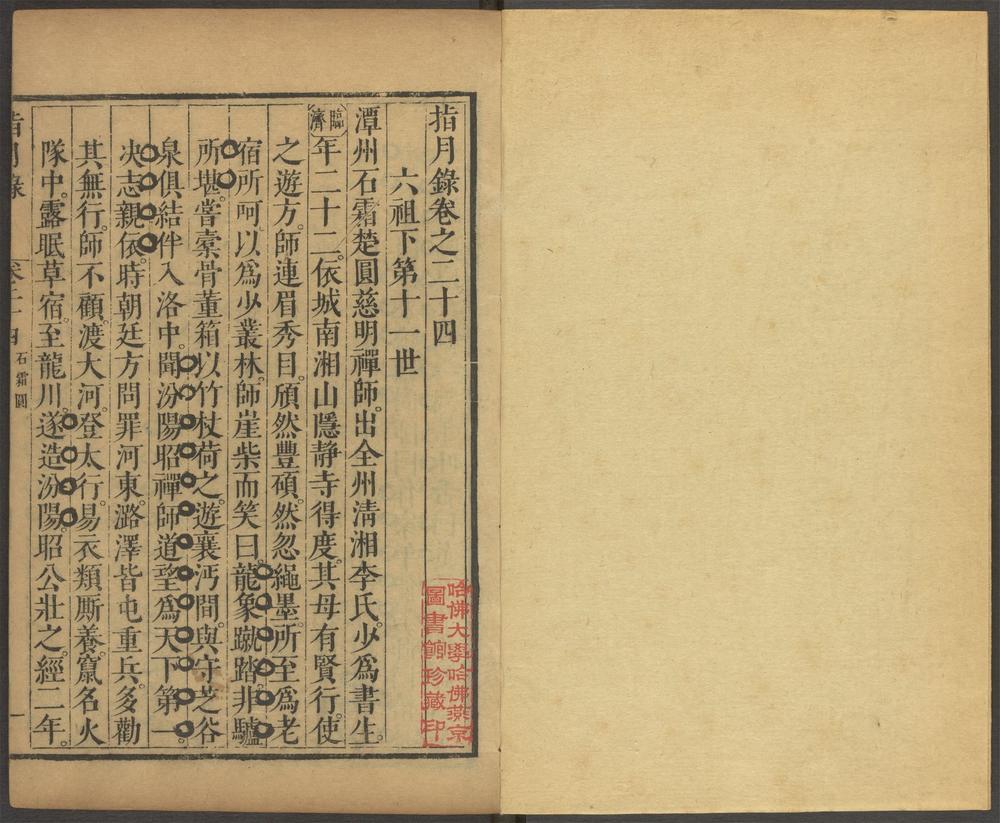 指月錄卷之二十四
六祖下第十一世
潭州石霜楚圓慈明禪師。出全州淸湘李氏。少爲書生。
臨濟
年二十二。依城南湘山隱靜寺得度。其母有賢行。使
之遊方。師連眉秀目。頎然豐碩。然忽繩墨。所至爲老
宿所呵。以爲少叢林。師崖柴而笑曰。龍象蹴踏。非驢
所堪。甞橐骨董箱。以竹杖荷之。遊襄沔間。與守芝谷
泉俱結伴入洛中。聞汾陽昭禪師道望爲天下第一。
决志親依。時朝廷方問罪河東。潞澤皆屯重兵。多勸
其無行。師不顧。渡大河。登太行。易衣類廝養。竄名火
隊中。露眠草宿。至龍川。遂造汾陽。昭公壯之。經二年。
指月錄 卷二十四 石霜圓 一
哈佛大學哈佛燕京
圖書館珍藏印